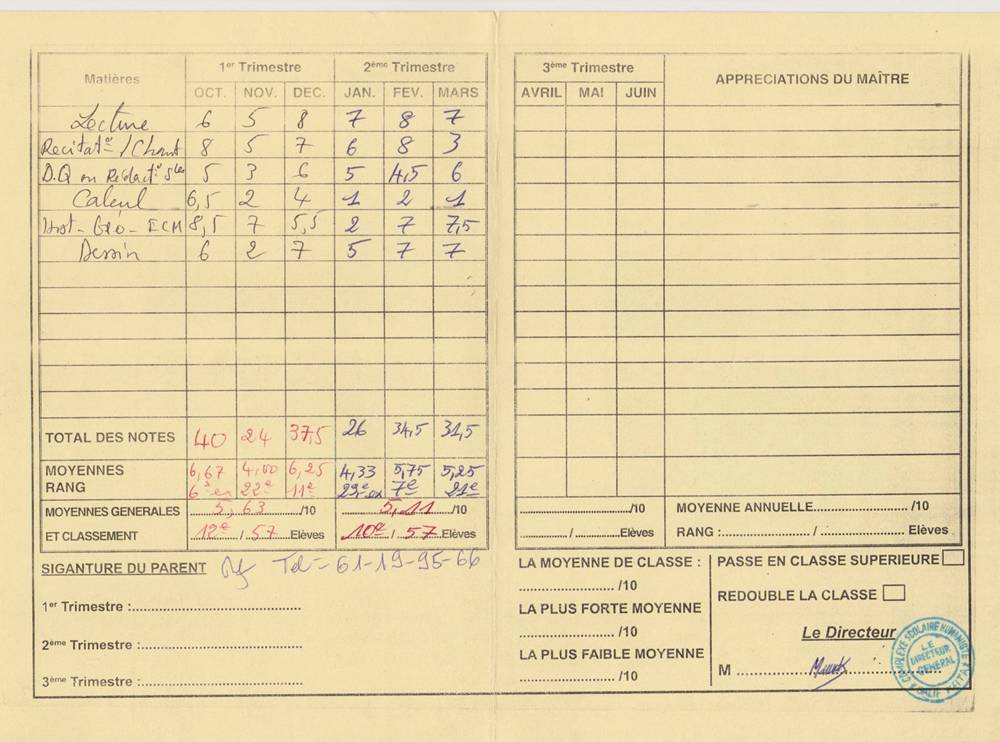 Matières 1er Trimestre 2ème Trimestre
OCT. NOV. DEC. JAN. FEV. MARS
Lecture 6 5 8 7 8 7
Recitat° / Chant 8 5 7 6 8 3
D.Q ou Rédact° 5 3 6 5 4,5 6
Calcul 6,5 2 4 1 2 1
Hist - Géo - ECM 8,5 7 5,5 2 7 7,5
Dessin 6 2 7 5 7 7
TOTAL DES NOTES 40 24 37,5 26 34,5 31,5
MOYENNES 6,67 4,00 6,25 4,33 5,75 5,25
RANG 6e ex 22e 11e 29e ex 7e 21e
MOYENNES GENERALES 5,63 /10 5,11 /10
ET CLASSEMENT 12e / 57 Elèves 10e / 57 Elèves
SIGANTURE DU PARENT Tel = 61-19-95-66
1er Trimestre :
2ème Trimestre :
3ème Trimestre :
3ème Trimestre APPRECIATIONS DU MAÎTRE
AVRIL MAI JUIN
/10 MOYENNE ANNUELLE /10
/ Elèves RANG : / Elèves
LA MOYENNE DE CLASSE :
/10
LA PLUS FORTE MOYENNE
/10
LA PLUS FAIBLE MOYENNE
/10
PASSE EN CLASSE SUPERIEURE
REDOUBLE LA CLASSE
Le Directeur
M
COMPLEXE SCOLAIRE HUMANISTE
LE DIRECTEUR GENERAL